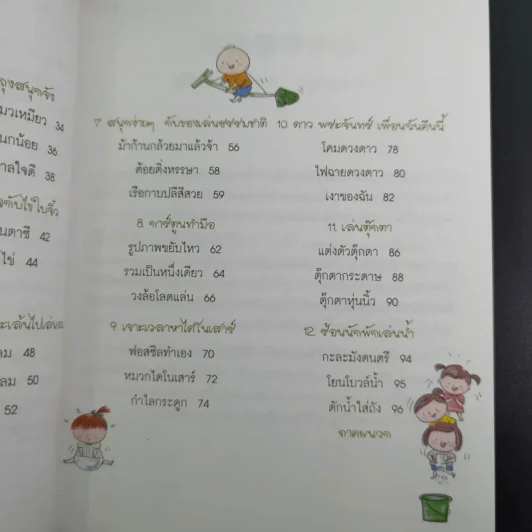 ถุงสนุกจัง
มวเหมียว 34
นกน้อย 36
าลใจดี 38
ไข่ใบจิ๋ว
นตาชี 42
ไข่ 44
ลม 48
ลม 50
52
7. สนุกง่ายๆ กับของเล่นธรรมชาติ
ม้าก้านกล้วยมาแล้วจ้า 56
ต้อยติ่งหรรษา 58
เรือกาบปลีสีสวย 59
8. การ์ตูนทำมือ
รูปภาพขยับไหว 62
รวมเป็นหนึ่งเดียว 64
วงล้อโลดแล่น 66
9. เจาะเวลาหาไดโนเสาร์
ฟอสซิลทำเอง 70
หมวกไดโนเสาร์ 72
กำไลกระดูก 74
10. ดาว พระจันทร์ เพื่อนฉันคืนนี้
โคมดวงดาว 78
ไฟฉายดวงดาว 80
เงาของฉัน 82
11. เล่นตุ๊กตา
แต่งตัวตุ๊กตา 86
ตุ๊กตากระดาษ 88
ตุ๊กตาหุ่นนิ้ว 90
12. ร้อนนักพักเล่นน้ำ
กะละมังดนตรี 94
โยนโบวล์น้ำ 95
ตักน้ำใส่ถัง 96
ภาคผนวก